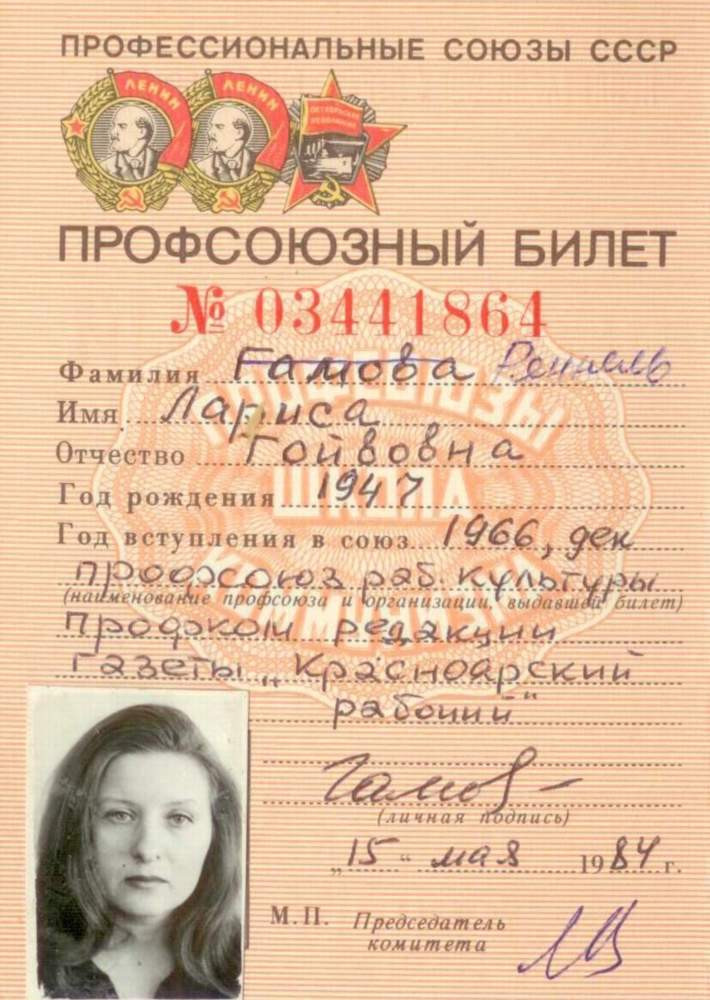 ПРОФЕССИОНАЛЬНЫЕ СОЮЗЫ СССР
ЛЕНИН ЛЕНИН ОКТЯБРЬСКАЯ РЕВОЛЮЦИЯ
ПРОФСОЮЗНЫЙ БИЛЕТ
№ 03441864
Фамилия Гамова
Имя Лариса
Отчество Гойвовна
Год рождения 1947
Год вступления в союз 1966, дек
профсоюз раб. культуры
(наименование профсоюза и организации, выдавшей билет)
профком редакции
газеты „Красноярский
рабочий"
Гамов
(личная подпись)
„15" мая 1984 г.
М.П. Председатель
комитета
ПРОФСОЮЗЫ
ШКОЛА
КОММУНИЗМА